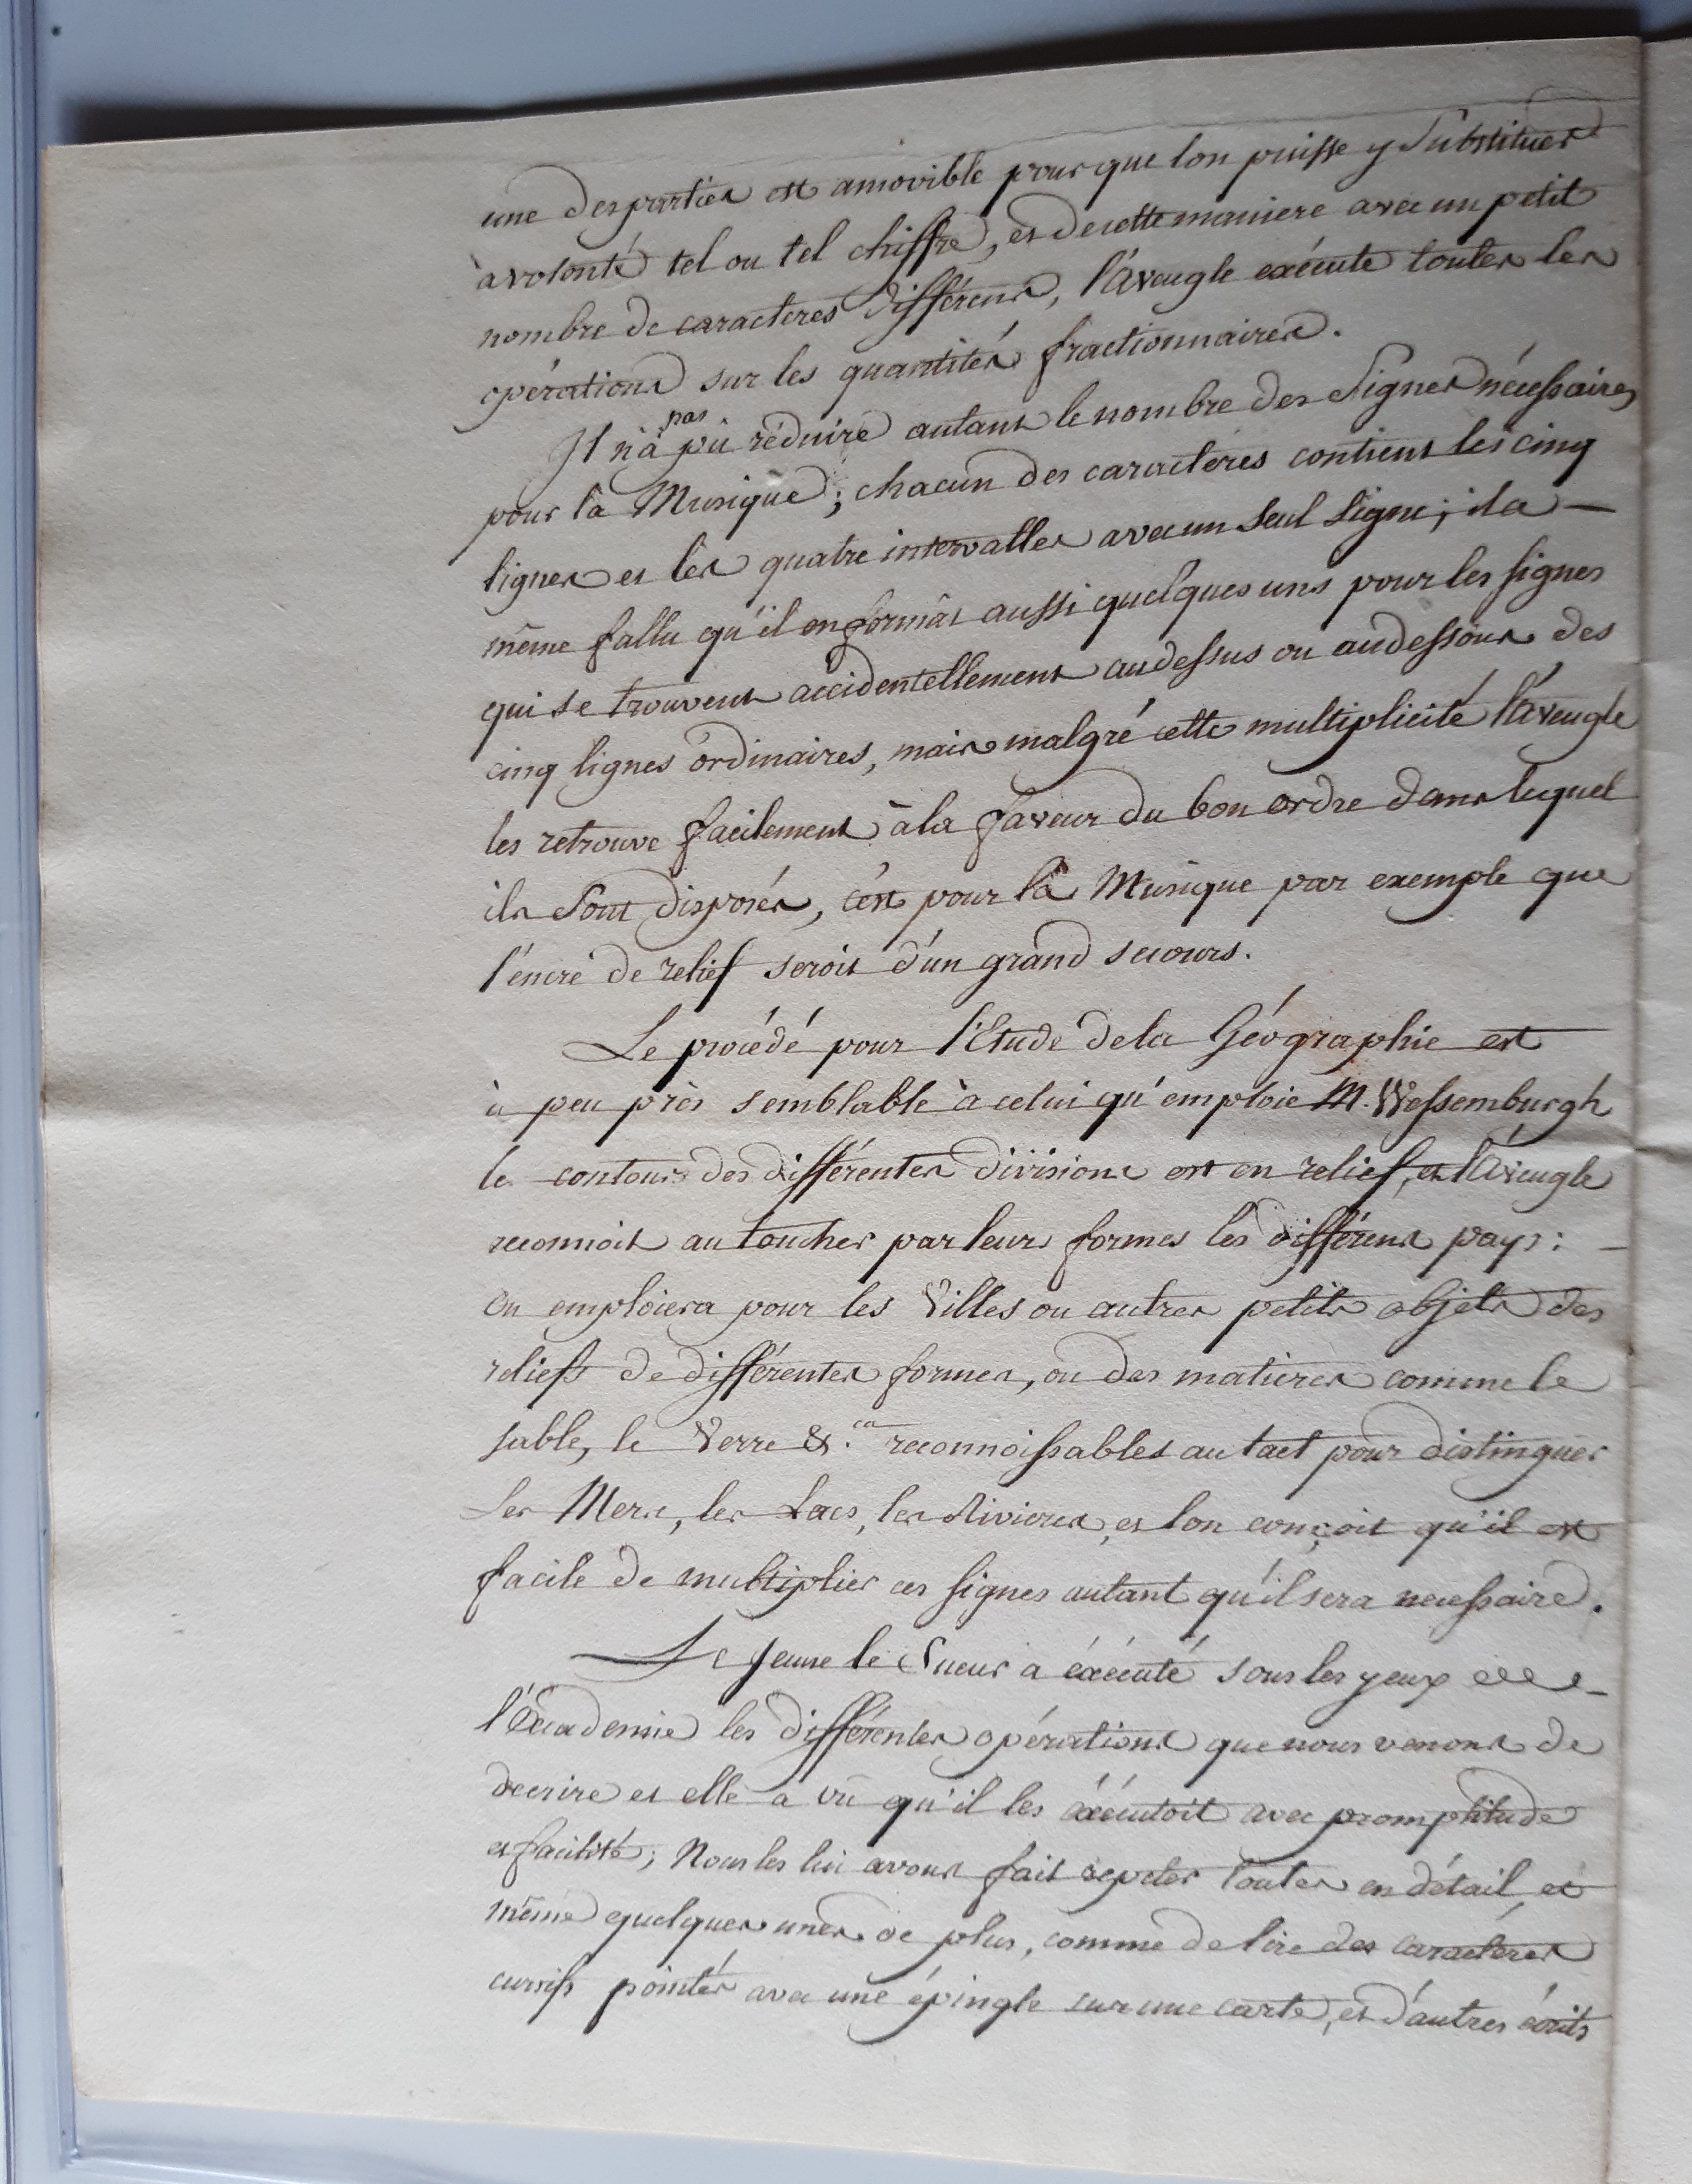 une des parties est amovible pour que lon puisse y Substituer
à volonté tel ou tel chiffre, et de cette maniere avec un petit
nombre de caracteres différens, l'Aveugle exécute toutes les
opérations sur les quantités fractionnaires.
Il n'a pas pû réduire autant le nombre des Signes nécessaires
pour la Musique; chacun des caractères contient les cinq
lignes et les quatre intervalles avec un seul signe; il a —
même fallu qu'il en formât aussi quelques uns pour les signes
qui se trouvent accidentellement audessus ou audessous des
cinq lignes ordinaires, mais malgré cette multiplicité l'Aveugle
les retrouve facilement à la faveur du bon ordre dans lequel
ils sont disposés, c'est pour la Musique par exemple que
l'encre de relief seroit d'un grand secours.
Le procédé pour l'Etude de la Géographie est
à peu près semblable à celui qu'emploie M. Wessemburgh
le contour des différentes divisions est en relief, et l'Aveugle
reconnoit au toucher par leurs formes les différens pays: —
On emploiera pour les Villes ou autres petits objets des
reliefs de différentes formes, ou des matières comme le
sable, le Verre &.ca reconnoissables au tact pour distinguer
Les Mers, les Lacs, les Rivieres, et lon conçoit qu'il est
facile de multiplier ces signes autant qu'il sera necessaire.
Le Jeune le Sueur a éxécuté sous les yeux de
l'Academie les différentes opérations que nous venons de
decrire et elle a vû qu'il les éxécutoit avec promptitude
et facilité; Nous les lui avons fait repeter toutes en détail et
même quelques unes de plus, comme de lire des caractéres
cursifs pointés avec une épingle sur une carte, et d'autres écrits